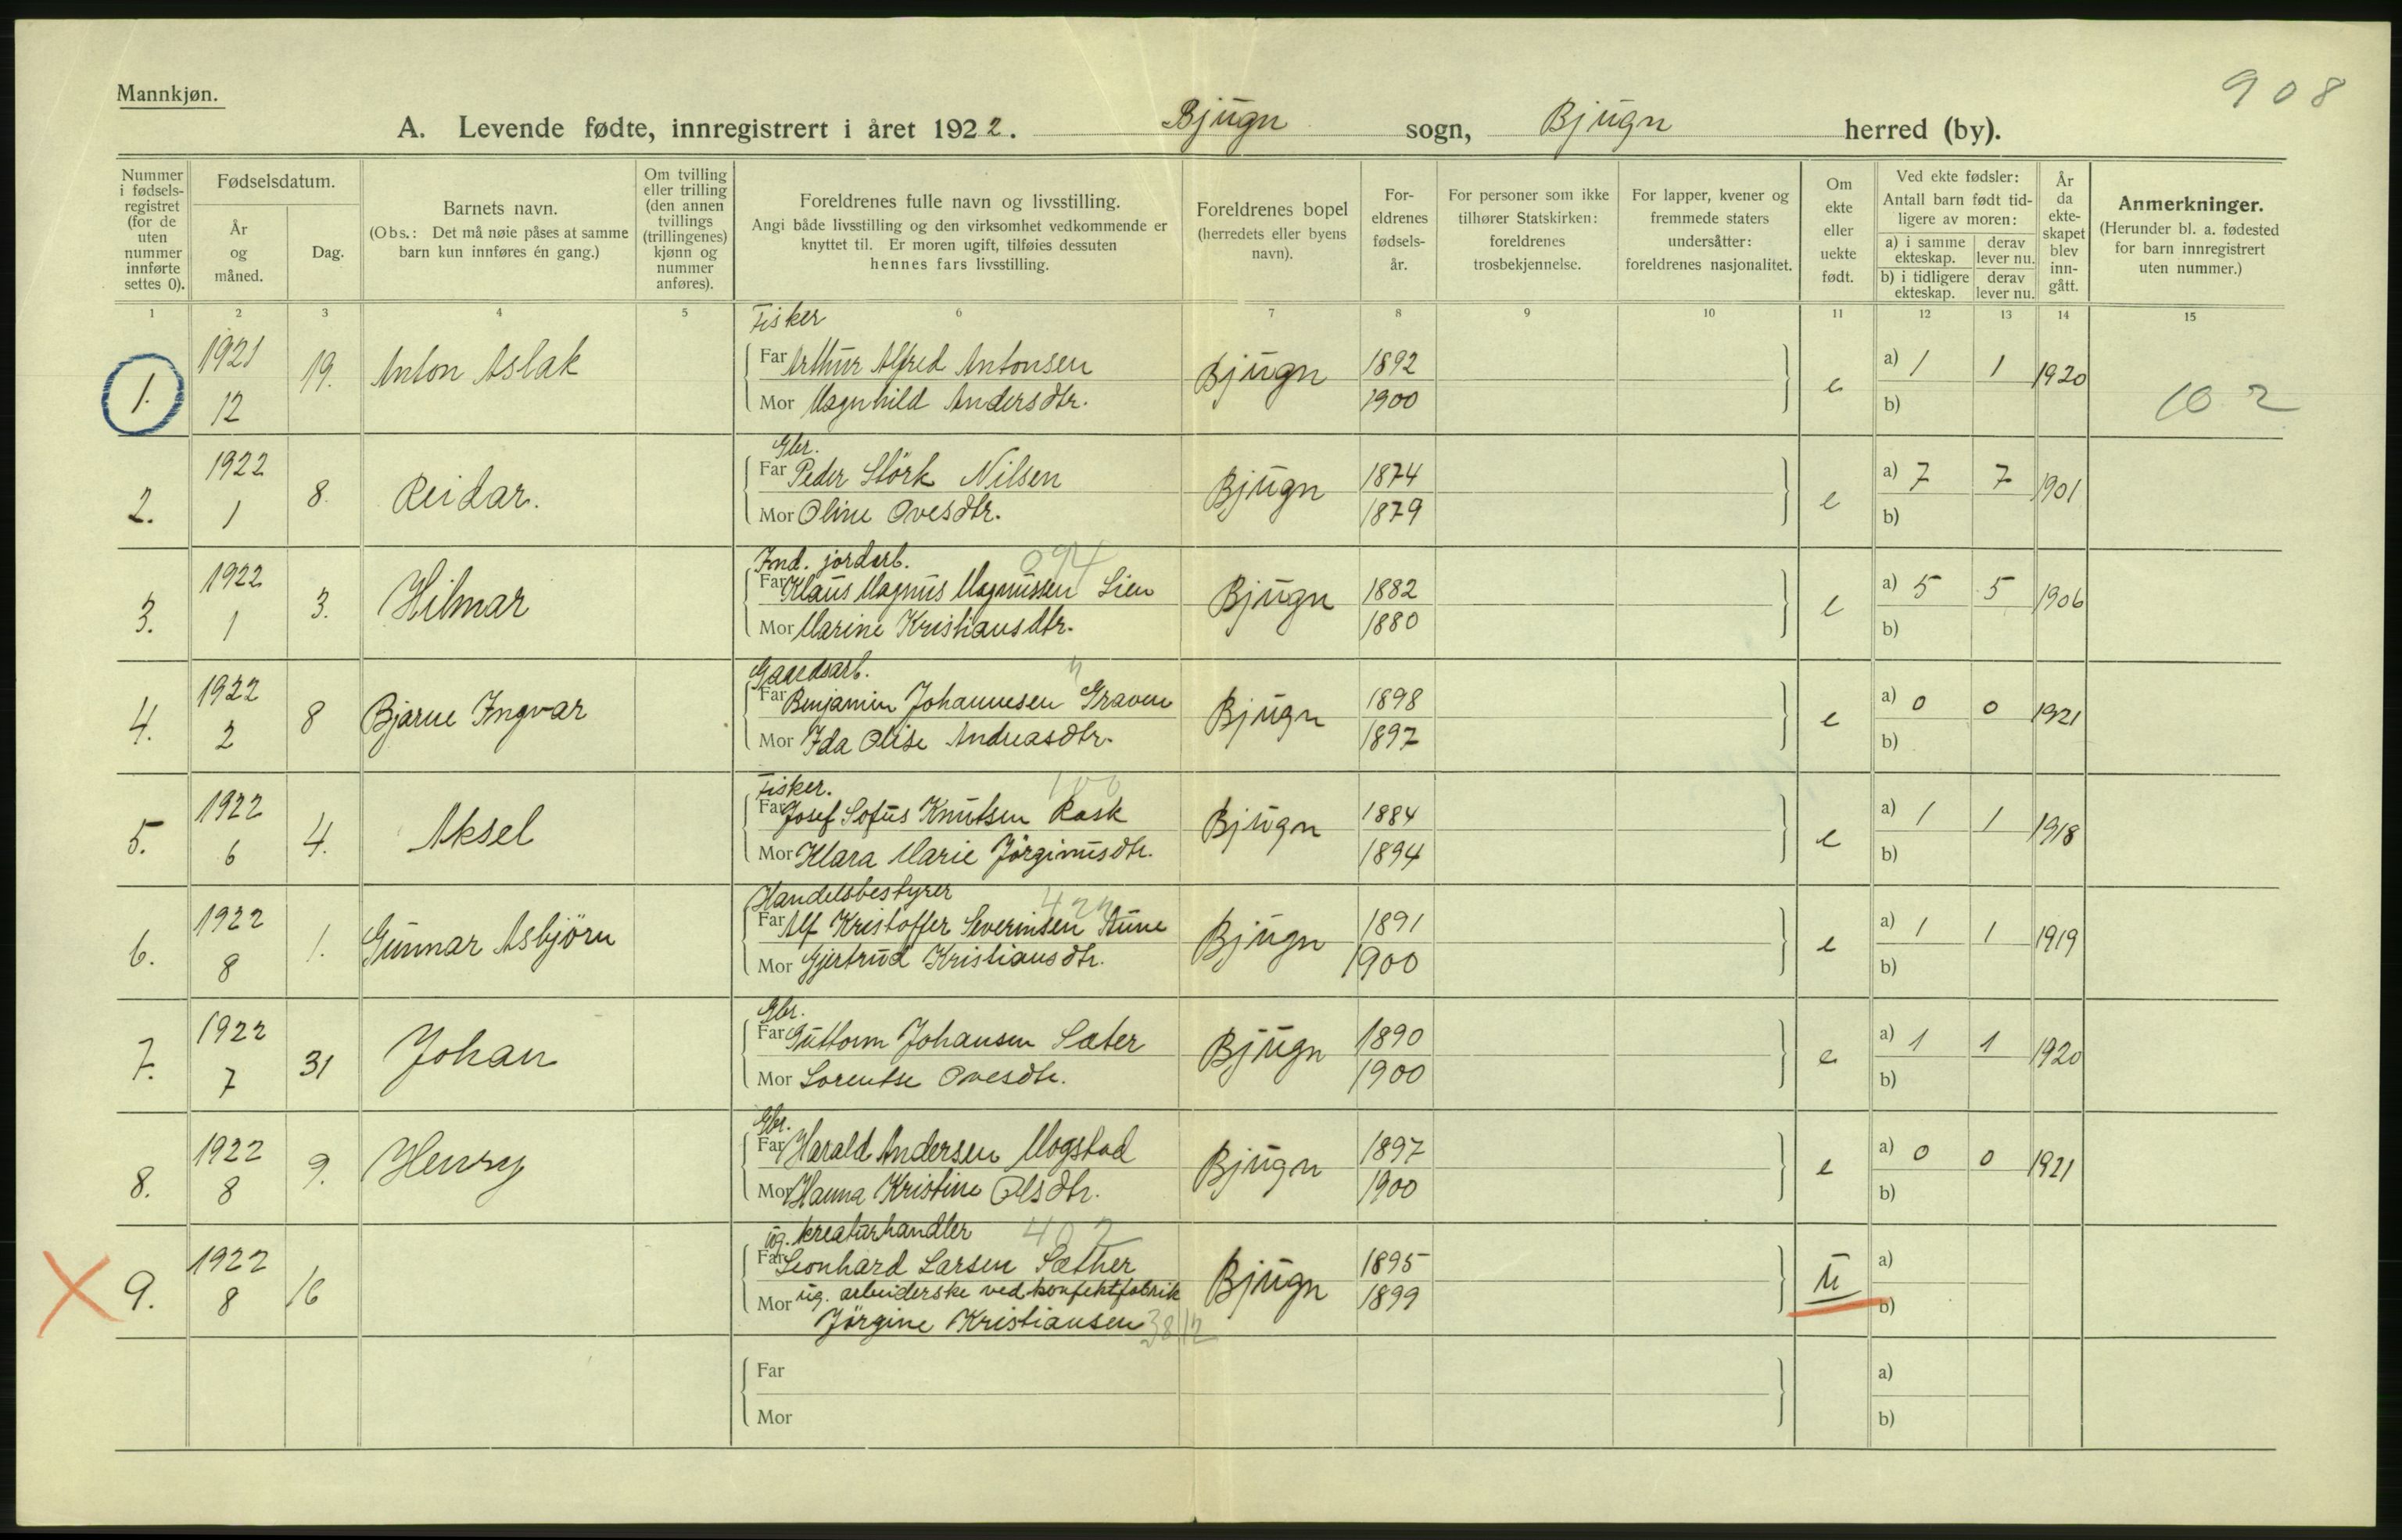 908
Mannkjøn.
A. Levende fødte, innregistrert i året 1922. Bjugn sogn, Bjugn herred (by).
Nummer i fødsels-registret (for de uten nummer innførte settes 0).
Fødselsdatum.
År og måned.
Dag.
Barnets navn.
(Obs.: Det må nøie påses at samme barn kun innføres én gang.)
Om tvilling eller trilling (den annen tvillings (trillingenes) kjønn og nummer anføres).
Foreldrenes fulle navn og livsstilling.
Angi både livsstilling og den virksomhet vedkommende er knyttet til. Er moren ugift, tilføies dessuten hennes fars livsstilling.
Foreldrenes bopel (herredets eller byens navn).
For-eldrenes fødsels-år.
For personer som ikke tilhører Statskirken: foreldrenes trosbekjennelse.
For lapper, kvener og fremmede staters undersåtter: foreldrenes nasjonalitet.
Om ekte eller uekte født.
Ved ekte fødsler:
Antall barn født tid-ligere av moren:
a) i samme ekteskap.
derav lever nu.
b) i tidligere ekteskap.
derav lever nu.
År da ekte-skapet blev inn-gått.
Anmerkninger.
(Herunder bl. a. fødested for barn innregistrert uten nummer.)
1 2 3 4 5 6 7 8 9 10 11 12 13 14 15
Fisker
1. 1921 12 19. Anton Aslak
Far Arthur Alfred Antonsen Bjugn 1892 e a) 1 1 1920
Mor Magnhild Andersdtr. 1900 b) 102
Gbr.
2. 1922 1 8. Reidar.
Far Peder Störk Nilsen Bjugn 1874 e a) 7 7 1901
Mor Oline Ovesdtr. 1879 b)
Ind. jordarb. 094
3. 1922 1 3. Hilmar
Far Klaus Magnus Magnussen Lien Bjugn 1882 e a) 5 5 1906
Mor Marine Kristiansdtr. 1880 b)
Gaardsarb. "
4. 1922 2 8 Bjarne Ingvar
Far Benjamin Johannesen Graven Bjugn 1898 e a) 0 0 1921
Mor Ida Olise Andreasdtr. 1897 b)
Fisker. 100
5. 1922 6 4. Aksel
Far Josef Sofus Knutsen Rask Bjugn 1884 e a) 1 1 1918
Mor Klara Marie Jörginusdtr. 1894 b)
Handelsbestyrer
6. 1922 8 1. Gunnar Asbjörn
Far Alf Kristoffer Severinsen Aune Bjugn 1891 e a) 1 1 1919
Mor Gjertrud Kristiansdtr. 1900 b)
Gbr.
7. 1922 7 31 Johan
Far Guttorm Johansen Sæter Bjugn 1890 e a) 1 1 1920
Mor Lorentse Ovesdtr. 1900 b)
Gbr.
8. 1922 8 9. Henry
Far Harald Andersen Mogstad Bjugn 1897 e a) 0 0 1921
Mor Hanna Kristine Olsdtr. 1900 b)
ug. kreaturhandler 402
9. 1922 8 16
Far Leonhard Larsen Sæther Bjugn 1895 u a)
Mor ug. arbeiderske ved konfektfabrik 1899 b)
Jörgine Kristiansen
Far a)
Mor b)